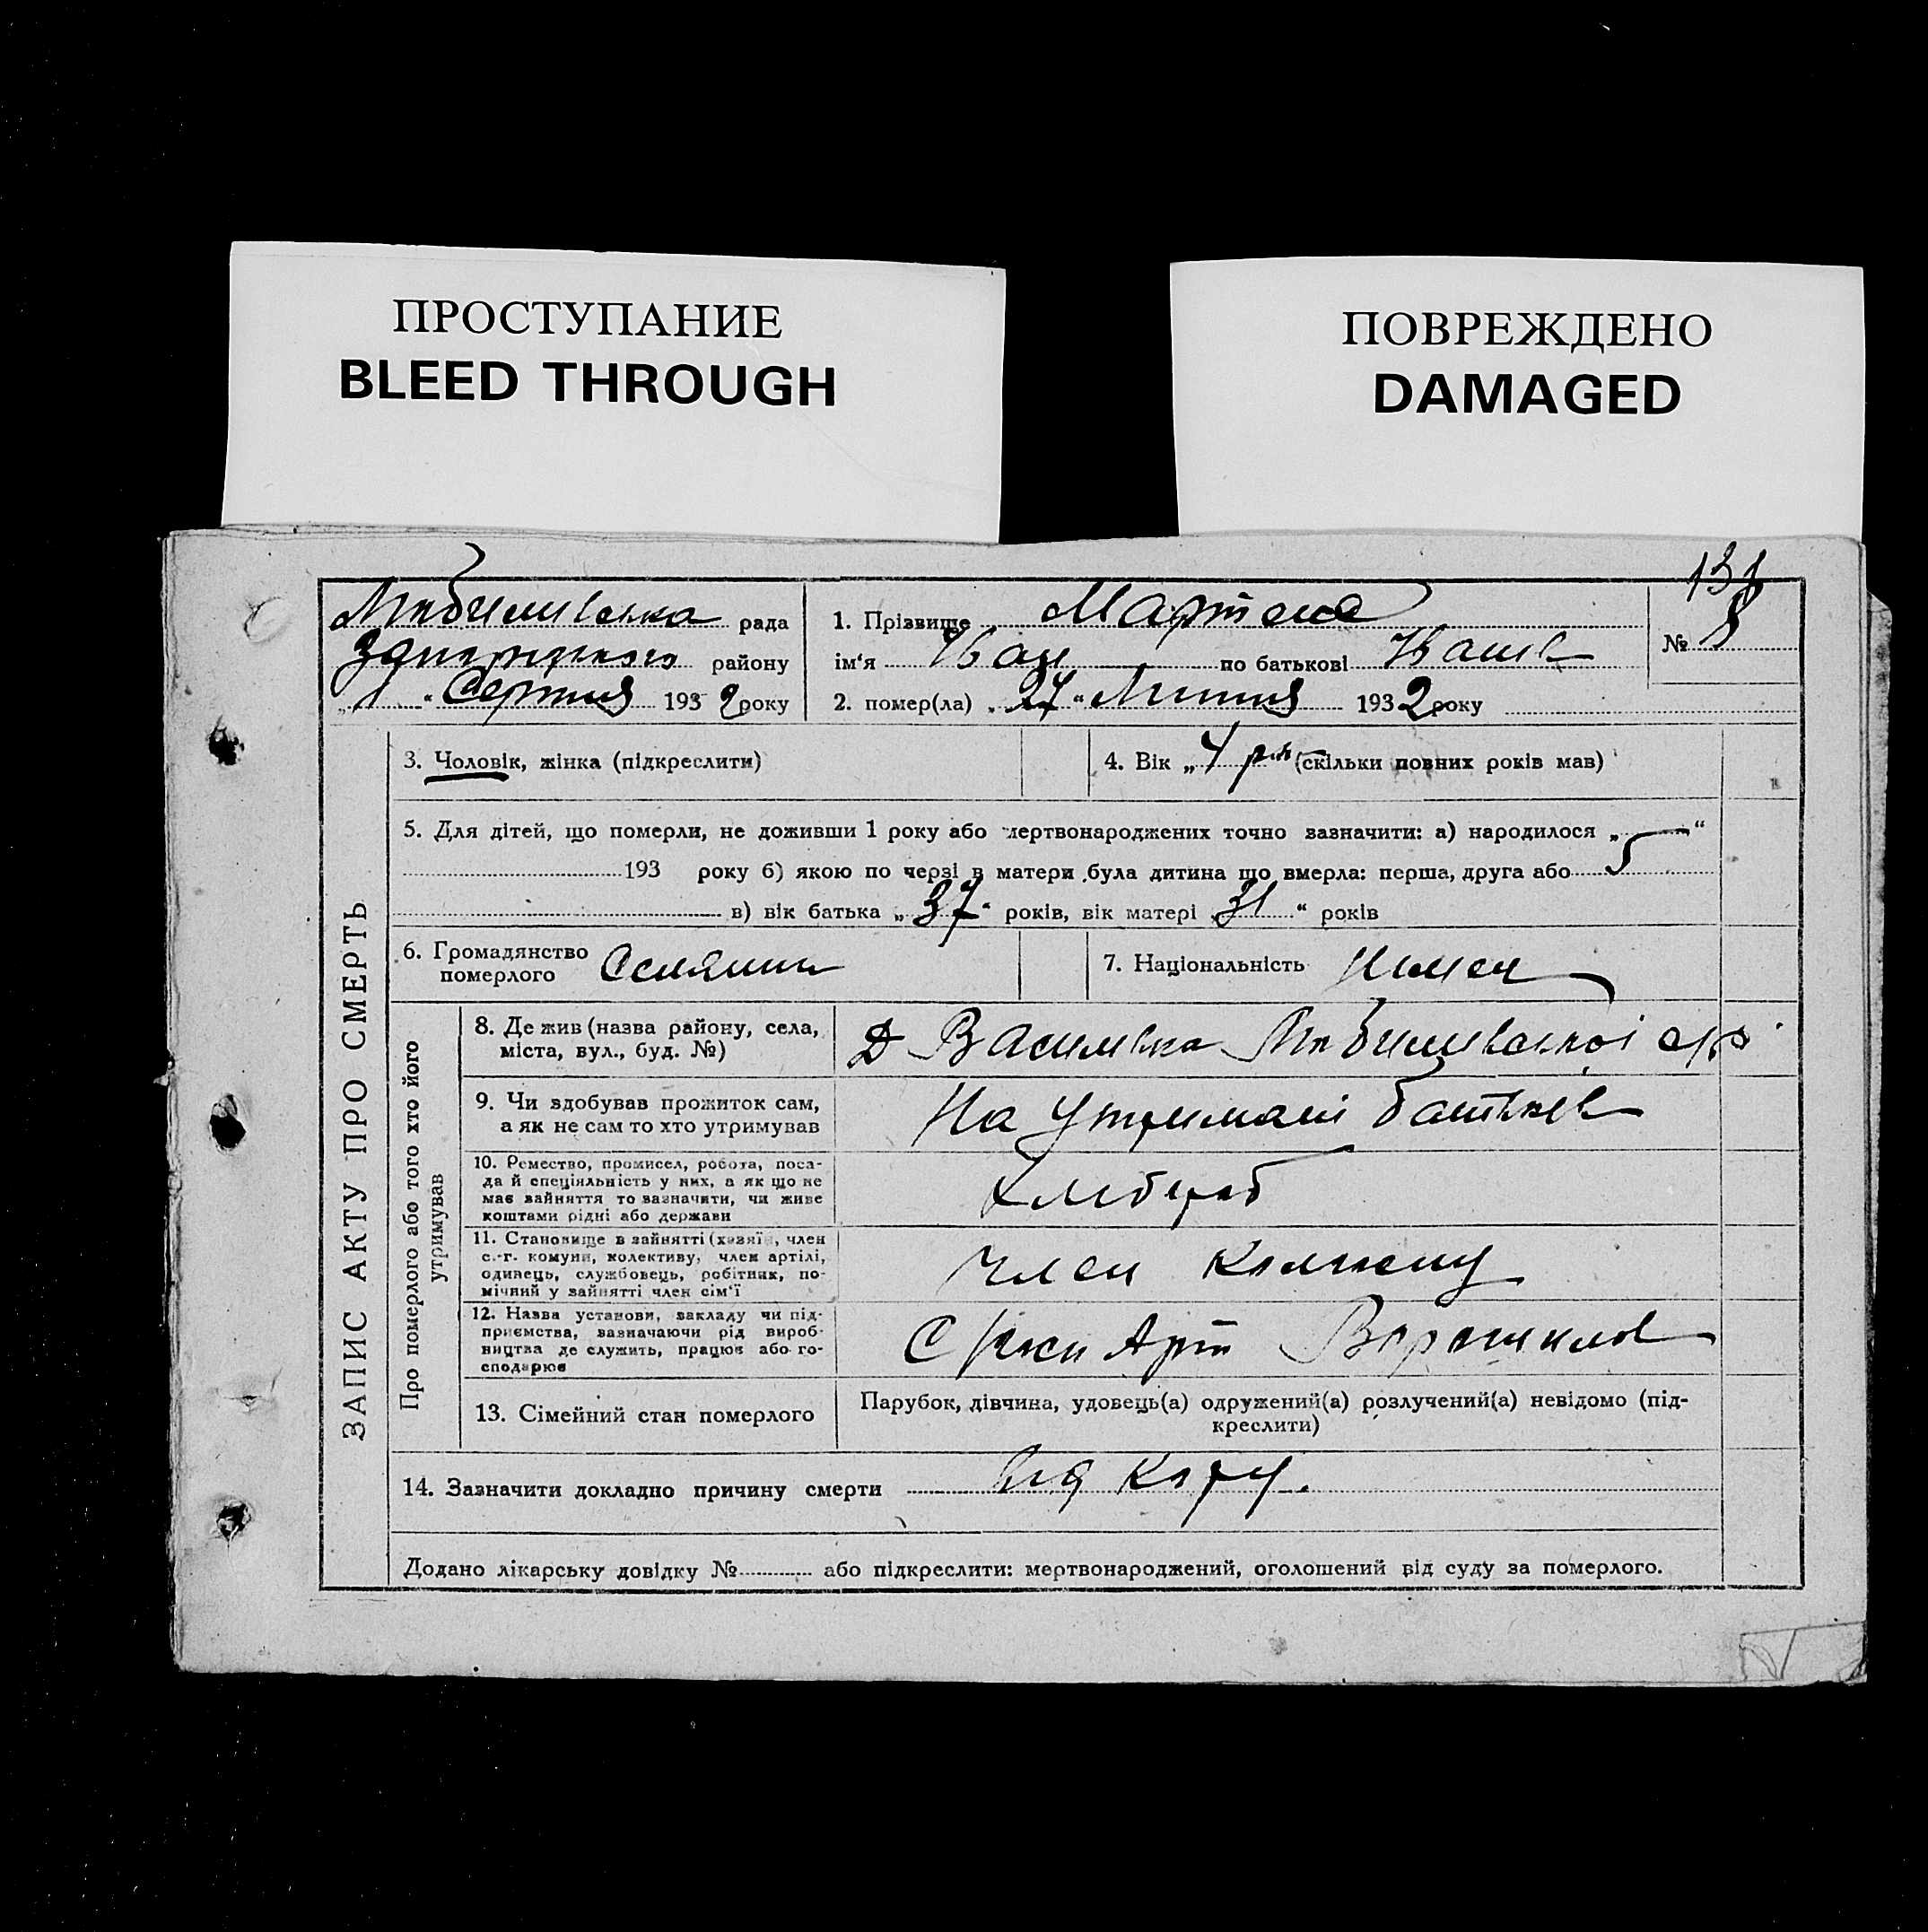 ПРОСТУПАНИЕ
BLEED THROUGH
ПОВРЕЖДЕНО
DAMAGED
131
Любимівська рада
району
„1“ Серпня 1932 року
1. Прізвище Мартенс
ім‘я Іван по батькові Іванів
2. помер(ла) „27“ Липня 1932 року
№ 8
ЗАПИС АКТУ ПРО СМЕРТЬ
3. Чоловік, жінка (підкреслити)
4. Вік „4 рік (скільки повних років мав)
5. Для дітей, що померли, не доживши 1 року або мертвонароджених точно зазначити: а) народилося „—“
193 року б) якою по черзі в матери була дитина що вмерла: перша, друга або 5
в) вік батька „37“ років, вік матері „31“ років
6. Громадянство
померлого Селянин
7. Національність Німец
Про померлого або того хто його
утримував
8. Де жив (назва району, села,
міста, вул., буд. №)
Д Василівка Любимівської с/р
9. Чи здобував прожиток сам,
а як не сам то хто утримував
На утримані батьків
10. Ремество, промисел, робота, поса-
да й спеціяльність у них, а як що не
має зайняття то зазначити, чи живе
коштами рідні або держави
Хлібороб
11. Становище в зайнятті (хазяїн, член
с.-г. комуни, колективу, член артілі,
одинець, службовець, робітник, по-
мічний у зайнятті член сім‘ї
Член колгоспу
12. Назва установи, закладу чи під-
приємства, зазначаючи рід вироб-
ництва де служить, працює або го-
сподарює
Арт Ворошилов
13. Сімейний стан померлого
Парубок, дівчина, удовець(а) одружений(а) розлучений(а) невідомо (під-
креслити)
14. Зазначити докладно причину смерти Від кору.
Додано лікарську довідку № або підкреслити: мертвонароджений, оголошений від суду за померлого.